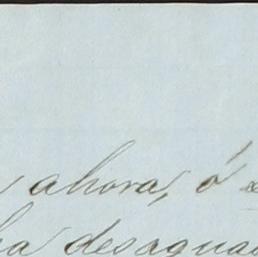 ahora, ó
desagua